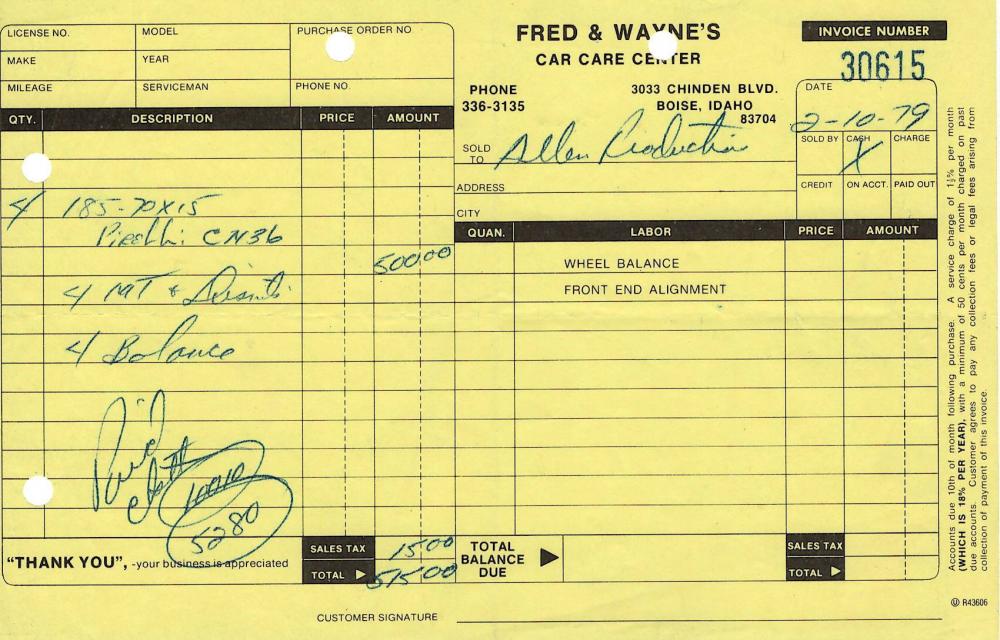 LICENSE NO. MODEL PURCHASE ORDER NO
MAKE YEAR
MILEAGE SERVICEMAN PHONE NO.
FRED & WAYNE'S
CAR CARE CENTER
PHONE
336-3135
3033 CHINDEN BLVD.
BOISE, IDAHO
83704
INVOICE NUMBER
30615
DATE
2-10-79
SOLD TO Allen Production
SOLD BY CASH X CHARGE
CREDIT ON ACCT. PAID OUT
ADDRESS
CITY
QTY. DESCRIPTION PRICE AMOUNT
4 185-70X15
Pirelli CN36
500 00
4 MT + Dismts.
4 Balance
Paid
10010
5280
"THANK YOU", -your business is appreciated
SALES TAX 15 00
TOTAL 515 00
QUAN. LABOR PRICE AMOUNT
WHEEL BALANCE
FRONT END ALIGNMENT
TOTAL
BALANCE
DUE
SALES TAX
TOTAL
CUSTOMER SIGNATURE
Accounts due 10th of month following purchase. A service charge of 1½% per month
(WHICH IS 18% PER YEAR), with a minimum of 50 cents per month charged on past
due accounts. Customer agrees to pay any collection fees or legal fees arising from
collection of payment of this invoice.
R43606